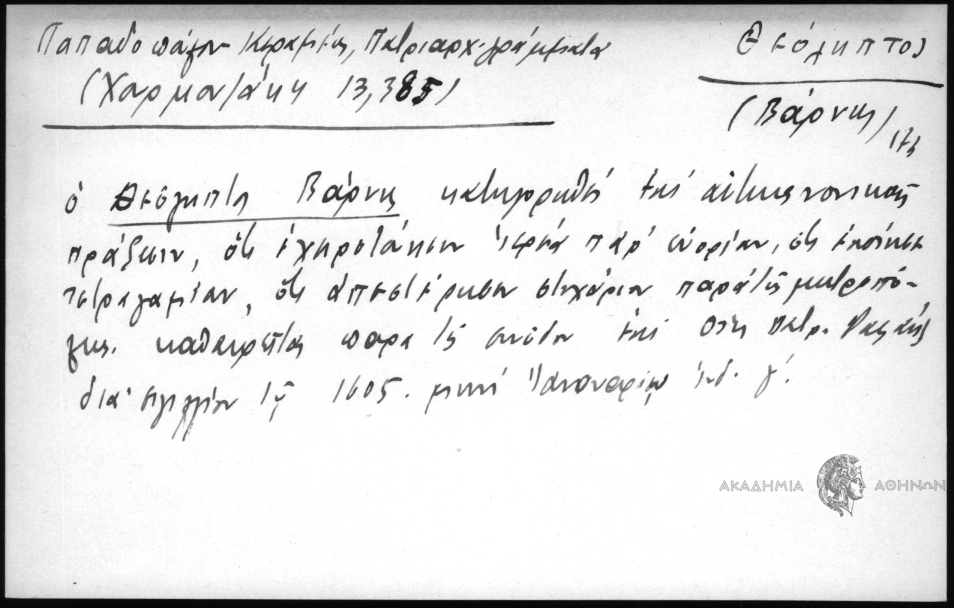 Παπαδοπούλου Κεραμέως, Πατριαρχ. γράμματα
(Χαρμαντάκη 13,385)
Θεόληπτος
(Βάρνης)
174
ὁ Θεόληπτος Βάρνης κατηγορηθεὶς ἐπὶ ἀντικανονικαῖς
πράξεσιν, ὅτι ἐχειροτόνησεν ἱερέα παρ' ἐνορίαν, ὅτι ἐποίησε
τετραγαμίαν, ὅτι ἀπεστέρησεν στιχάριον παρὰ τῆς μητροπό-
λεως. καθαιρεῖται παρὰ τῆς συνόδου ἐπὶ Πατρ. Ραφαὴλ
διὰ σιγιλλίου τῷ 1605. μηνὶ Ἰανουαρίῳ ἰνδ. γ'.
ΑΚΑΔΗΜΙΑ ΑΘΗΝΩΝ